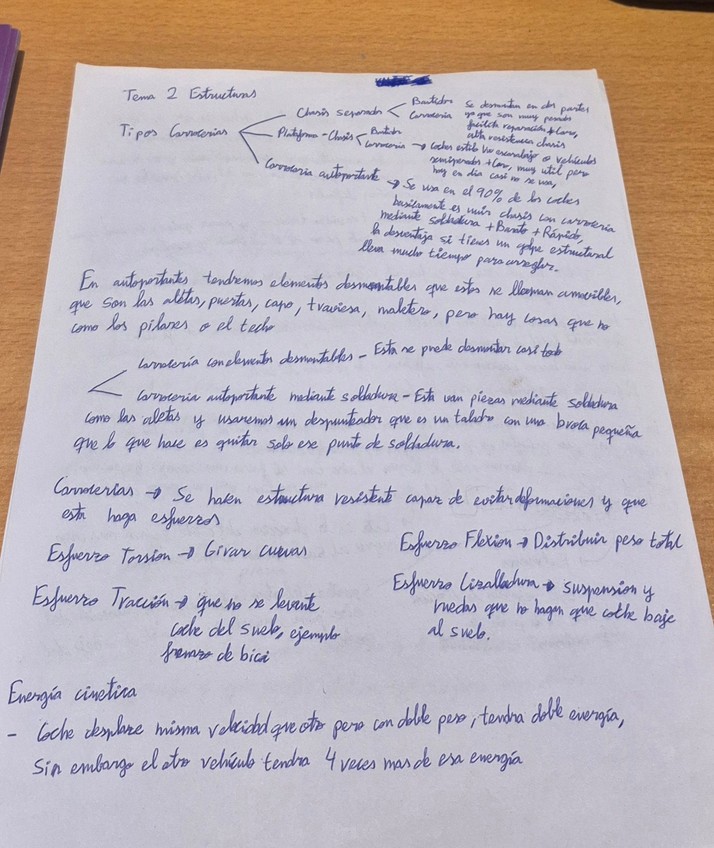 Tema 2 Estructuras
Tipos Carrocerias
Chasis separado < Bastidor
Carroceria
Se desmontan en dos partes
ya que son muy pesados
facilita reparación + Caro,
alta resistencia chasis
Plataforma - Chasis < Bastidor
Carroceria → Coches estilo Vw escarabajo o vehiculos
semipesados + Caro, muy util pero
hoy en dia casi no se usa,
Carroceria autoportante → Se usa en el 90% de los coches
basicamente es unir chasis con carroceria
mediante soldadura + Barato + Rápido,
la desventaja si tienes un golpe estructural
lleva mucho tiempo para arreglar.
En autoportantes tendremos elementos desmontables que estos se llaman amovibles,
que son las aletas, puertas, capo, traviesa, maletero, pero hay cosas que no
como los pilares o el techo
Carrocería con elementos desmontables - Esta se puede desmontar casi todo
Carroceria autoportante mediante soldadura - Esta van piezas mediante soldadura
como las aletas y usaremos un despunteador que es un taladro con una broca pequeña
que lo que hace es quitar solo ese punto de soldadura.
Carrocerias → Se hacen estructura resistente capaz de evitar deformaciones y que
esta haga esfuerzos
Esfuerzo Torsion → Girar curvas
Esfuerzo Flexion → Distribuir peso total
Esfuerzo Tracción → que no se levante
coche del suelo, ejemplo
frenazo de bici
Esfuerzo Cizalladura → suspension y
ruedas que no hagan que coche baje
al suelo.
Energía cinetica
- Coche desplace misma velocidad que otro pero con doble peso, tendra doble energía,
Sin embargo el otro vehículo tendra 4 veces mas de esa energía